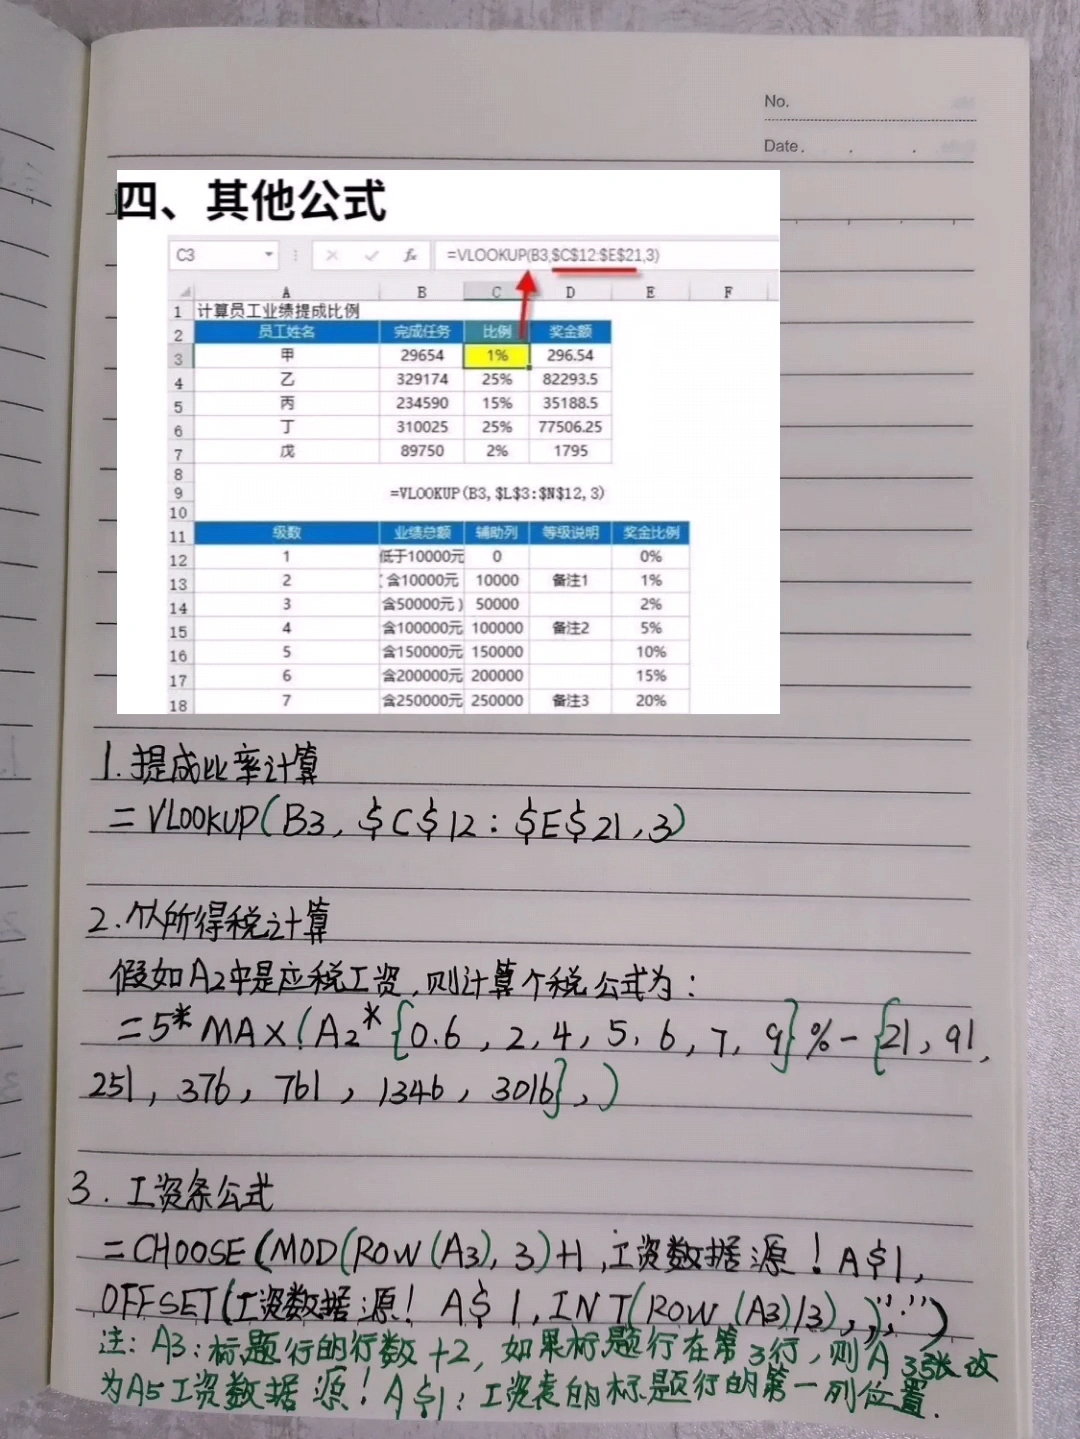 No.
Date.
四、其他公式
C3 fx =VLOOKUP(B3,$C$12:$E$21,3)
A B C D E F
1 计算员工业绩提成比例
2 员工姓名 完成任务 比例 奖金额
3 甲 29654 1% 296.54
4 乙 329174 25% 82293.5
5 丙 234590 15% 35188.5
6 丁 310025 25% 77506.25
7 戊 89750 2% 1795
8
9 =VLOOKUP(B3,$L$3:$N$12,3)
10
11 级数 业绩总额 辅助列 等级说明 奖金比例
12 1 低于10000元 0 0%
13 2 含10000元 10000 备注1 1%
14 3 含50000元) 50000 2%
15 4 含100000元 100000 备注2 5%
16 5 含150000元 150000 10%
17 6 含200000元 200000 15%
18 7 含250000元 250000 备注3 20%
1.提成比率计算
=VLOOKUP(B3,$C$12:$E$21,3)
2.个人所得税计算
假如A2中是应税工资,则计算个税公式为:
=5*MAX(A2*{0.6,2,4,5,6,7,9}%-{21,91,
251,376,761,1346,3016},)
3.工资条公式
=CHOOSE(MOD(ROW(A3),3)+1,工资数据源!A$1,
OFFSET(工资数据源!A$1,INT(ROW(A3)/3),),"")
注:A3:标题行的行数+2,如果标题行在第3行,则A3
为A5工资数据源!A$1:工资表的标题行的第一列位置.